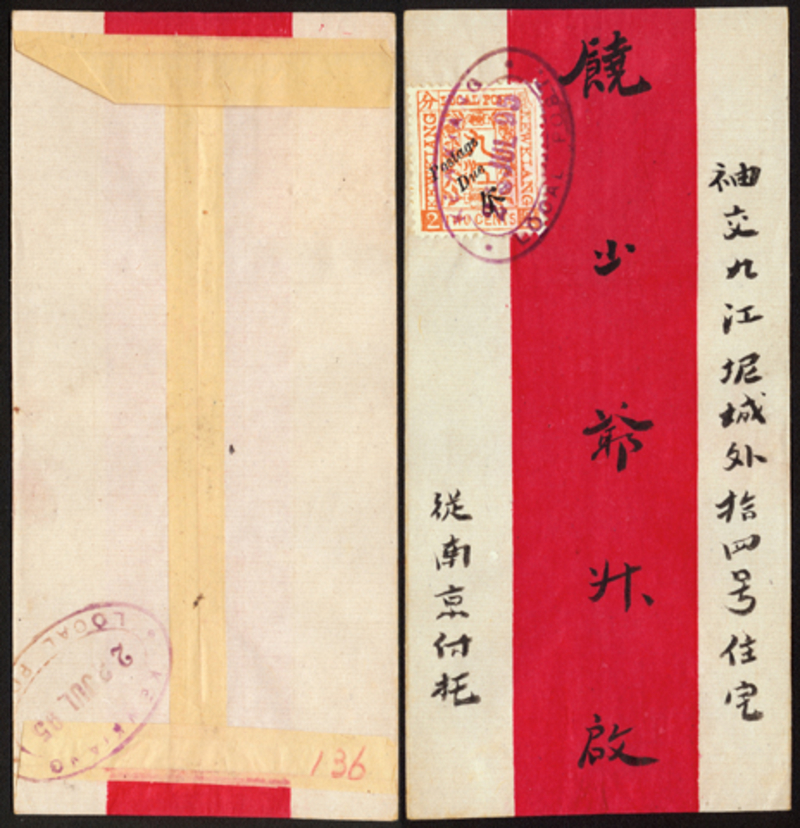 袖交九江坭城外拾四号住宅
饒少爺升啟
從南京付托
分 LOCAL POST
KEWKIANG
KEWKIANG
2 TWO CENTS
Postage
Due
LOCAL
KEWKIANG
LOCAL
JUL 95
136